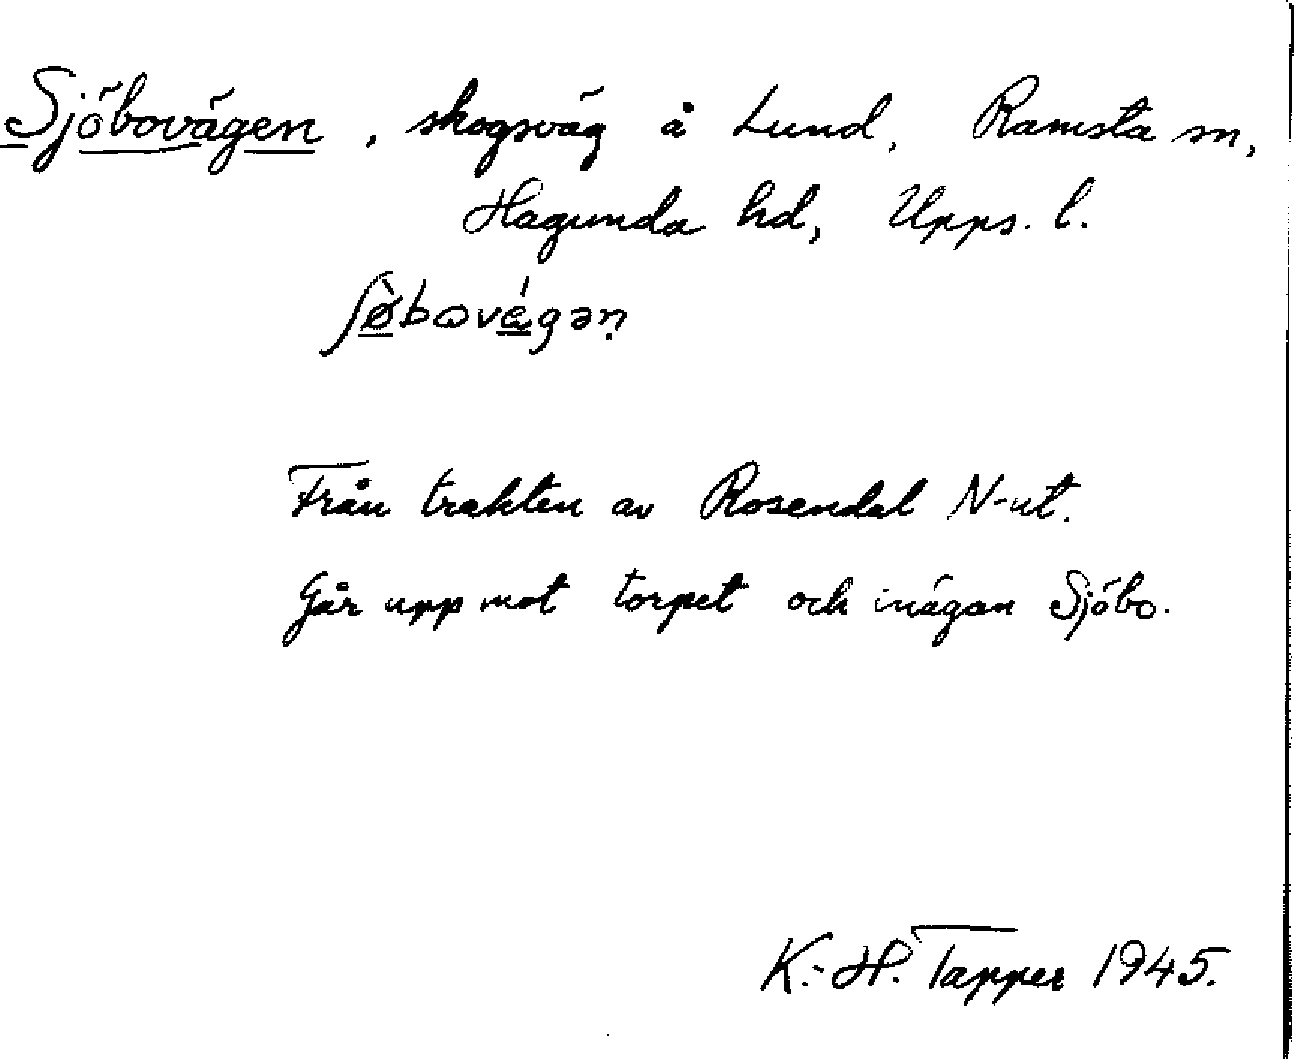 Sjöbovägen, skogsväg å Lund, Ramsta sn,
Hagunda hd, Upps. l.
ʃø̀bovǽgən̥
Från trakten av Rosendal N-ut.
Går upp mot torpet och inägan Sjöbo.
K.-H. Tapper 1945.